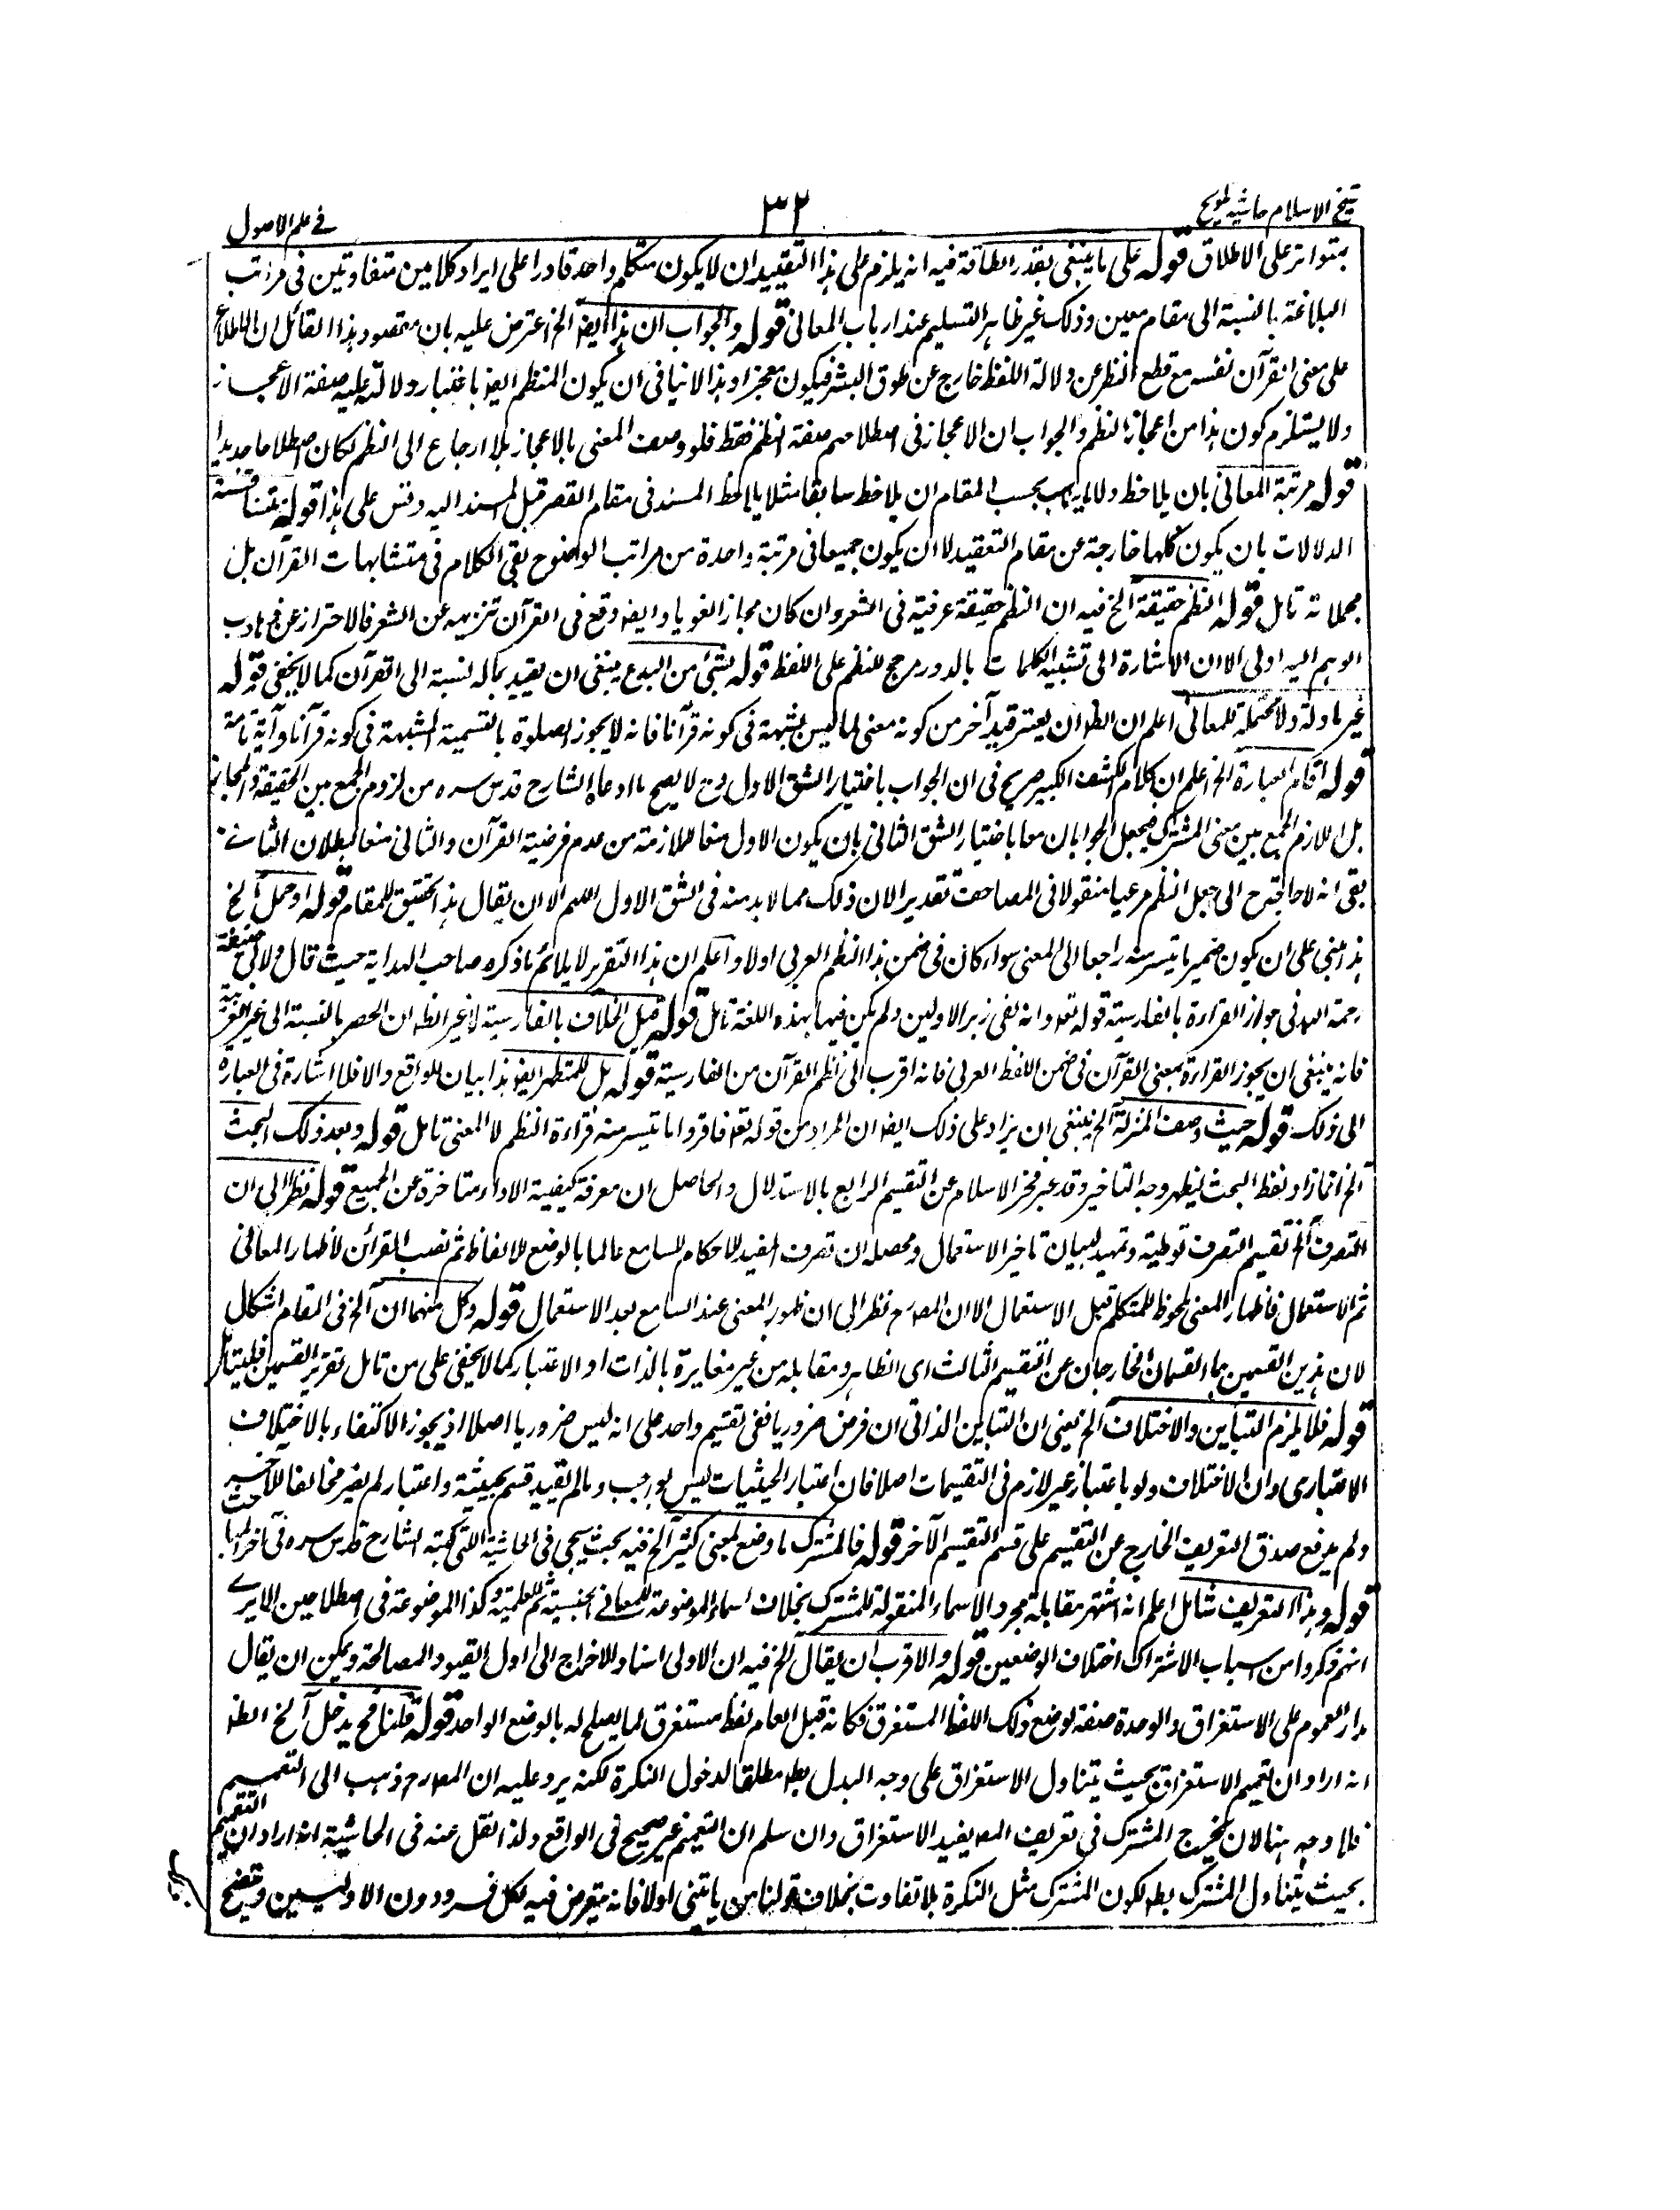 شيخ الاسلام حاشيه تلويح
٣٢
فى علم الاصول
بتواتر على الاطلاق قوله على ما ينبغى بقدر الطاقة فيه انه يلزم على هذا التقييد ان لا يكون متكلم واحد قادرا على ايراد كلامين متفاوتين فى مراتب
البلاغة بالنسبة الى مقام معين وذلك غير ظاهر التسليم عند ارباب المعانى قوله والجواب ان هذا ايضا الخ اعترض عليه بان مقصود هذا القائل ان الاطلاع
على معنى القرآن نفسه مع قطع النظر عن دلالة اللفظ خارج عن طوق البشر فيكون معجزا وهذا لا ينافى ان يكون النظم ايضا باعتبار دلالته عليه صفة الاعجاز
ولا يستلزم كون هذا من اعجاز النظم والجواب ان الاعجاز فى اصطلاحهم صفة النظم فقط فلو وصف المعنى بالاعجاز بلا ارجاع الى النظم لكان اصطلاحا جديدا
قوله مرتبة المعانى بان يلاحظ ولا ما يجب بحسب المقام ان يلاحظ سابقا مثلا يلاحظ المسند فى مقام القصر قبل المسند اليه وقس على هذا قوله متناسقة
الدلالات بان يكون كلها خارجة عن مقام التعقيد لا ان يكون جميعا فى مرتبة واحدة من مراتب الوضوح بقى الكلام فى متشابهات القرآن بل
مجملاته تامل قوله النظم حقيقة الخ فيه ان النظم حقيقة عرفية فى الشعر وان كان مجازا لغويا وايضا وقع فى القرآن تنزيهه عن الشعر فالاحتراز عن
الوهم اليه اولى الا ان الاشارة الى تشبيه الكلمات بالدرر مرجح للنظم على اللفظ قوله بشئ من البدع ينبغى ان يقيد بماله نسبة الى القرآن كما لا يخفى قوله
غير ماولة ولا محتملة للمعانى اعلم ان الظ ان يعتبر قيد آخر من كونه معنى لما ليس بشبهة فى كونه قرآنا فانه لا يجوز الصلوة بالتسمية لشبهة فى كونه قرآنا وآية تامة
قوله اقام العبارة الخ اعلم ان كلام الكشف الكبير صريح فى ان الجواب باختيار الشق الاول وح لا يصح ما ادعاه الشارح قدس سره من لزوم الجمع بين الحقيقة والمجاز
بل اللازم الجمع بين معنى المشترك فيجعل الجوابان معا باختيار الشق الثانى بان يكون الاول منعا للملازمة من عدم فرضية القرآن والثانى منعا لبطلان الثانى
بقى انه لا حاجة ح الى جعل النظم مرعيا منقولا فى المصاحف تقديرا لان ذلك مما لا بد منه فى الشق الاول اللهم الا ان يقال هذا تحقيق للمقام قوله او حمل الخ
هذا مبنى على ان يكون ضمير ما تيسر منه راجعا الى المعنى سواء كان فى ضمن هذا النظم العربى اولا واعلم ان هذا التقرير لا يلائم ما ذكره صاحب الهداية حيث قال ولابى حنيفة
رحمة الله فى جواز القراءة بالفارسية قوله تعه وانه لفى زبر الاولين ولم يكن فيها بهذه اللغة تامل قوله قيل الخلاف بالفارسية لا غير الظ ان الحصر بالنسبة الى غير العربية
فانه ينبغى ان يجوز القراءة بمعنى القرآن فى ضمن اللفظ العربى فانه اقرب الى نظم القرآن من الفارسية قوله بل للمتطهر ايضا هذا بيان للواقع والا فلا اشارة فى العبارة
الى ذلك قوله حيث وصف المنزلة الخ ينبغى ان يزاد على ذلك ايضا ان المراد من قوله تعه فاقرؤا ما تيسر منه قراءة النظم لا المعنى تامل قوله وبعد ذلك البحث
الخ انما زاد لفظ البحث ليظهر وجه التاخير وقد عبر فخر الاسلام عن التقسيم الرابع بالاستدلال والحاصل ان معرفة كيفية الاداء متاخرة عن الجميع قوله نظرا الى ان
التصرف الخ تقسيم التصرف توطية وتمهيد لبيان تاخير الاستعمال ومحصله ان تصرف المفيد للاحكام للسامع عالما بالوضع للالفاظ ثم نصب القرائن لاظهار المعانى
ثم الاستعمال فاظهار المعنى ملحوظ للمتكلم قبل الاستعمال الا ان المصه نظر الى ان ظهور المعنى عند السامع بعد الاستعمال قوله وكل منهما ان الخ فى المقام اشكال
لان هذين القسمين هما القسمان الخارجان عن التقسيم الثالث اى الظاهر ومقابله من غير مغايرة بالذات او الاعتبار كما لا يخفى على من تامل تقرير القسمين فليتامل
قوله فلا يلزم التباين والاختلاف الخ يعنى ان التباين الذاتى ان فرض ضروريا ففى تقسيم واحد على انه ليس ضروريا اصلا اذ يجوز الاكتفاء بالاختلاف
الاعتبارى وان الاختلاف ولو باعتبار غير لازم فى التقسيمات اصلا فان اعتبار الحيثيات ليس بواجب وما لم يقيد قسم بحيثية واعتبار لم يصر مخالفا للآخر
ولم يدفع صدق التعريف الخارج عن التقسيم على قسم التقسيم الآخر قوله فالمشترك ما وضع لمعنى كثير الخ فيه بحث سيجئ فى الحاشية التى كتبه الشارح قدس سره فى آخر المباحث
قوله وهذا التعريف شامل اعلم انه اشتهر مقابلة مجرد الاسماء المنقولة للمشترك بخلاف اسماء الموضوعة للمعانى الجنسية ثم للعلمية وكذا الموضوعة فى اصطلاحين الا يرى
انهم ذكروا من اسباب الاشتراك اختلاف الوضعين قوله والاقرب ان يقال الخ فيه ان الاولى اسناد الاخراج الى اول القيود الصالحة ويمكن ان يقال
مدار العموم على الاستغراق والوحدة صفة لوضع ذلك اللفظ المستغرق فكانه قيل العام لفظ مستغرق لما يصلح له بالوضع الواحد قوله قلنا فح يدخل الخ الظ
انه اراد ان تعميم الاستغراق بحيث يتناول الاستغراق على وجه البدل بط مطلقا لدخول النكرة لكنه يرد عليه ان المصه ذهب الى التعميم
فلا وجه هنا لان يخرج المشترك فى تعريف المصه يفيد الاستغراق وان سلم ان التعميم غير صحيح فى الواقع ولذا نقل عنه فى الحاشية انه اراد ان التعميم
بحيث يتناول المشترك بط لكون المشترك مثل النكرة بلا تفاوت بخلاف قولنا من ياتينى اولا فانه يتعرض فيه لكل فرد دون الاوليين وتوضيح